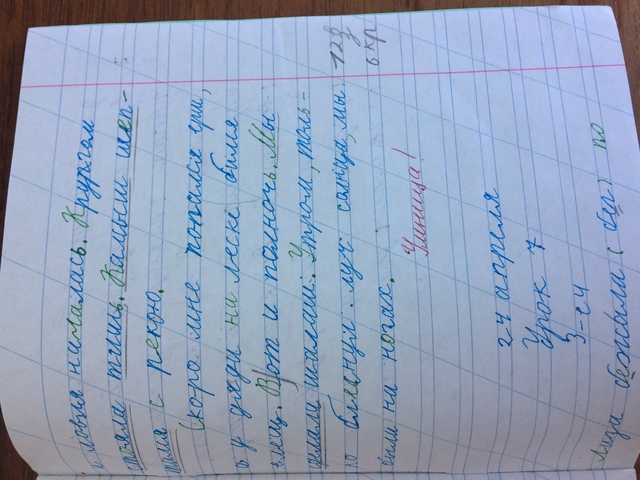 и ловля началась. Кругом
стояла тишь. Камыш шеп-
тался с рекою.
Скоро мне попался ерш,
а у дяди на леске бился
лещ. Вот и полночь. Мы
сделали шалаш. Утром, толь-
ко блеснул луч солнца, мы
были на ногах.
12 з
6 кр
Умница!
24 апреля
Урок 7
3-ч
Лиза бежала (бег) по